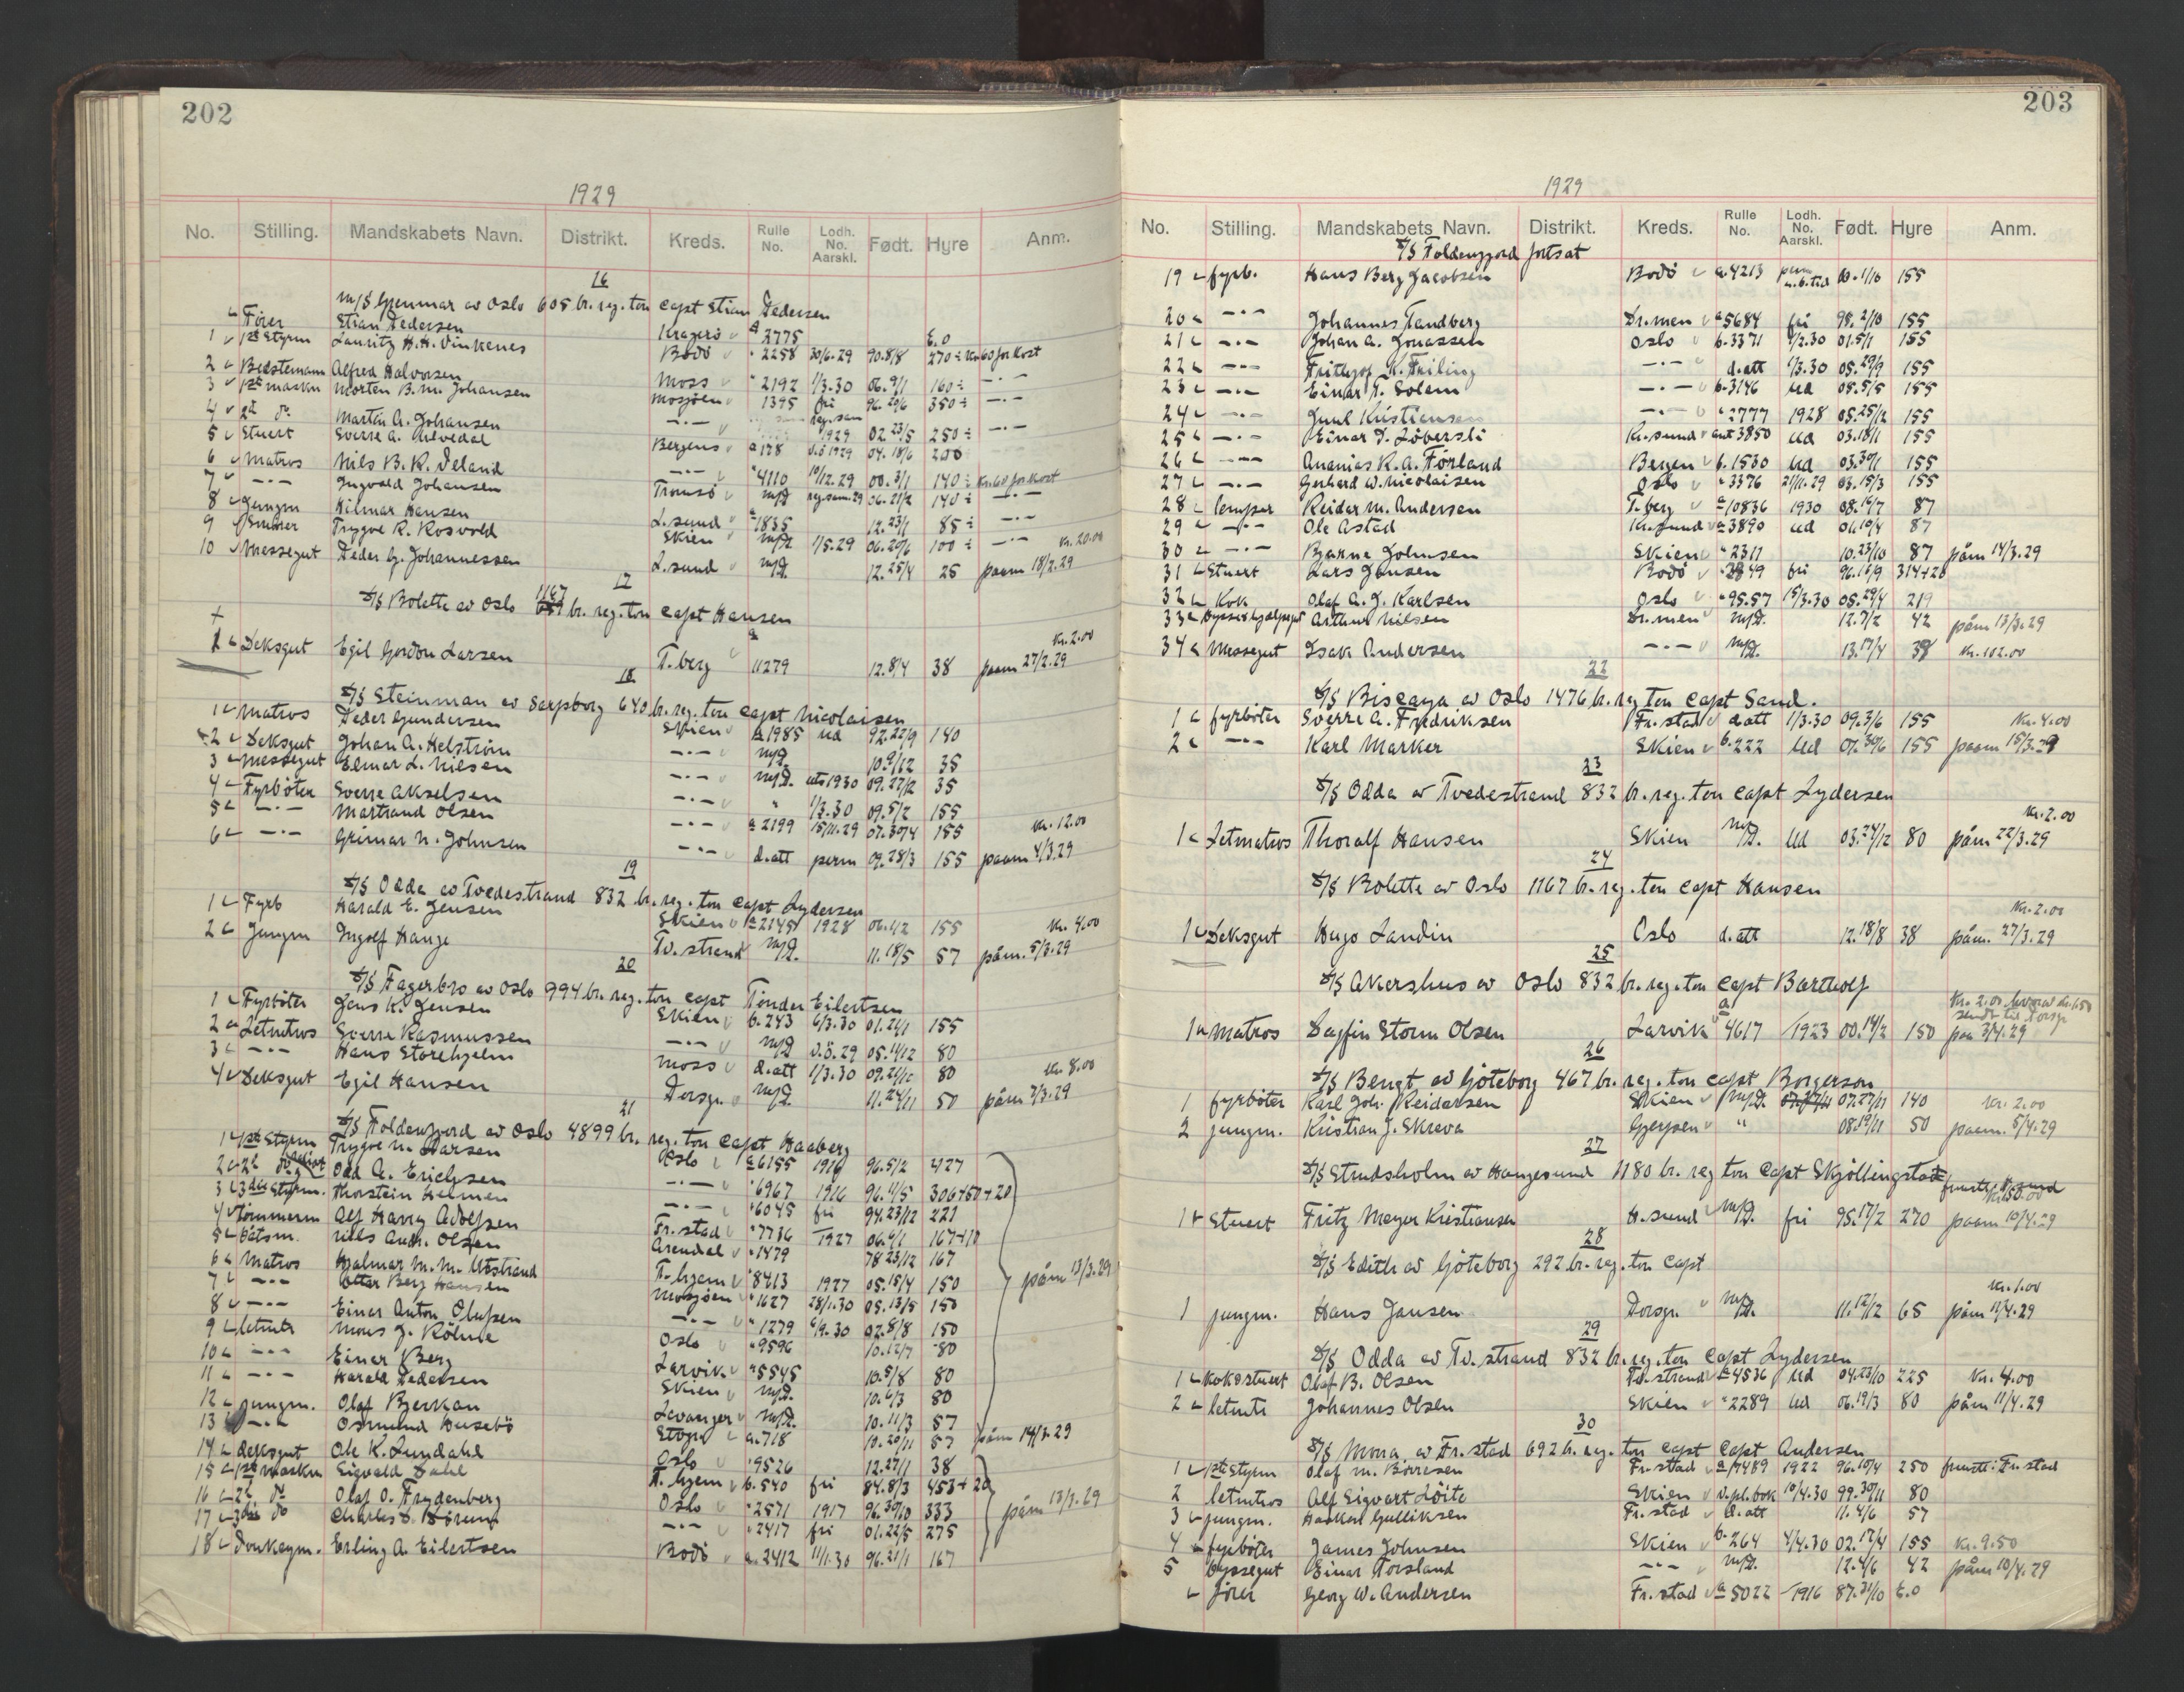 202
1929
No. Stilling. Mandskabets Navn. Distrikt. Kreds. Rulle No. Lodh. No. Aarskl. Født. Hyre Anm.
16
M/S Grenmar av Oslo 605 br. reg. ton Capt Stian Pedersen
Fører Stian Pedersen Kragerø a 2775 E.O
1 1ste Styrm Lauritz H. H. Vinkenes Bodö " 2258 30/6.29 90.8/8 270 ÷ Kr 60 for kost
2 Bedstemann Alfred Halvorsen Moss " 2192 1/3.30 06.9/1 160 ÷ —·—
3 1ste maskn Morten B. M. Johansen Mosjöen 1395 fri 96.20/6 350 ÷ —·—
4 2d do Martin A. Johansen —·— 1929 02.23/5 250 ÷ —·—
5 Stuert Sverre A. Bergens a 178 1929 04.18/6 200
6 Matros Nils B. R. Deland —·— " 4110 10/12.29 00.3/1 140 ÷ Kr. 60 for kost
7 —·— Ingvald Johansen Tromsö m/P. 06.21/2 140 ÷ —·—
8 Jungm Hilmar Hansen L.sund a 1835 12.23/1 85 ÷ —·—
9 Trygve R. Rosvold Skien m/P. 1/5.29 06.20/6 100 ÷ —·— Kr. 20.00
10 Messegut Peder G. Johannessen L.sund m/P. 12.25/4 25 paam 18/2.29
17
S/S Bolette av Oslo 1167 br. reg. ton Capt Hansen
1 Deksgut Egil Gordon Larsen T.berg a 11279 12.8/4 38 paam 27/2.29 Kr. 2.00
18
S/S Steinman av Sarpsborg 640 br. reg. ton Capt Nicolaisen
1 Matros Peder Gundersen Skien a 1985 Ud 92.22/9 140
2 Deksgut Johan A. Helström —·— m/P. 10.9/12 35
3 Messegut Elmar L. Nilsen —·— m/P. uts 1930 09.22/12 35
4 Fyrböter Sverre Akselsen —·— " 1/3.30 09.5/2 155
5 —·— Martrand Olsen —·— a 2199 15/11.29 07.30/4 155 Kr. 12.00
6 —·— Grimar N. Johnsen —·— d.att perm 09.28/3 155 paam 4/3.29
19
S/S Odda av Tvedestrand 832 br. reg. ton Capt Lydersen
1 Fyrb Harald E. Jensen Skien a 2145 1928 06.1/2 155 Kr. 4.00
2 Jungm Ingolf Hauge Tv.strand m/P. 11.18/5 57 påm. 5/3.29
20
S/S Fagerbro av Oslo 994 br. reg. ton Capt Tønder Eilertsen
1 Fyrböter Jens K. Jensen Skien b. 243 6/3.30 01.21/1 155
2 Letmtros Sverre Rasmussen —·— m/P. V.ö.29 05.14/12 80
3 —·— Hans Storehjelm Moss d.att 1/3.30 09.21/10 80 Kr. 8.00
4 Deksgut Egil Hansen Porsgr. m/P. 11.24/11 50 påm 7/3.29
21
S/S Foldenfjord av Oslo 4899 br. reg. ton Capt Haaberg
1 1ste Styrm Trygve M. Larsen Oslo a 6155 1916 96.5/2 427
2 2d do Odd A. Erichsen —·— " 6967 1916 96.11/5 306+50+20
3 3die Styrm. Thorstein Helmen —·— " 6045 fri 94.23/12 221
4 Tömmerm Alf Harry Adolfsen Fr.stad " 7736 1927 06.4/1 167+10
5 Båtsm. Nils Andr. Olsen Arendal " 1479 78.23/12 167
6 Matros Hjalmar M. M. Utstrand T.hjem " 8413 1927 05.15/4 150 påm 13/3.29
7 —·— Ottar Berg Hansen Mosjöen " 1627 28/1.30 05.13/5 150
8 —·— Einar Anton Olufsen —·— " 1279 6/9.30 02.8/8 150
9 Letmts Mons J. Röhne Oslo " 9596 10.12/7 80
10 —·— Einar Berg Larvik " 5545 10.5/8 80
11 —·— Harald Pedersen Skien m/P. 10.6/3 80
12 Jungm. Olaf Bjerkan Levanger m/P. 10.11/3 57
13 —·— Osmund Husebö a. 718 10.20/11 57 påm 14/3.29
14 Deksgut Ole K. Lundahl Oslo " 9526 12.27/1 38
15 1ste Maskn Sigvald Dahl T.hjem b. 540 fri 84.8/3 453+20
16 2d do Olaf O. Frydenberg Oslo " 2571 1917 96.30/10 333 påm 13/3.29
17 3die do Charles —·— " 2417 fri 01.22/5 275
18 Donkeym. Erling A. Eilertsen Bodö a. 2412 11/1.30 96.21/1 167
203
1929
No. Stilling. Mandskabets Navn. Distrikt. Kreds. Rulle No. Lodh. No. Aarskl. Født. Hyre Anm.
S/S Foldenfjord fortsat
19 fyrb. Hans Berg Jacobsen Bodö a. 4213 perm u.b.tid 00.1/10 155
20 —·— Johannes Tandberg Dr.men a 5684 fri 98.2/10 155
21 —·— Johan A. Jonassen Oslo b. 3371 1/2.30 01.5/1 155
22 —·— Frithjof K. Friling —·— d.att 1/3.30 05.29/9 155
23 —·— Einar T. Solem —·— b. 3146 Ud 05.5/5 155
24 —·— Juul Kristiansen —·— " 2777 1928 05.25/12 155
25 —·— Einar P. Löbersli Kr.sund ant 3850 Ud 03.18/1 155
26 —·— Ananias R. A. Förland Bergen b. 1530 Ud 03.30/1 155
27 —·— Gerhard W. Nicolaisen Oslo " 3376 21/11.29 03.15/3 155
28 lemper Reidar M. Andersen T.berg a 10836 1930 08.16/7 87
29 —·— Ole Astad Kr.sund a 3890 Ud 01.10/4 87
30 —·— Bjarne Johnsen Skien " 2311 10.23/10 87 påm 14/3.29
31 Stuert Lars Jensen Bodö " 2849 fri 96.16/9 314+20
32 Kok Olaf A. J. Karlsen Oslo " 95.57 15/3.30 05.29/4 219
33 Byssehjelpegut Arthur Nilsen Dr.men m/P. 12.7/2 42 påm 13/3.29
34 Messegut Isak Andersen —·— m/P. 13.17/4 38 Kr. 102.00
22
S/S Biscaya av Oslo 1476 br. reg ton Capt Sand.
1 fyrböter Sverre A. Fredriksen Fr.stad d.att 1/3.30 09.3/6 155 Kr. 4.00
2 —·— Karl Marker Skien b. 222 Ud 07.30/6 155 paam 15/3.29
23
S/S Odda av Tvedestrand 832 br. reg. ton Capt Lydersen
Kr. 2.00
1 Letmatros Thoralf Hansen Skien m/P. Ud 03.24/12 80 påm 22/3.29
24
S/S Bolette av Oslo 1167 br. reg. ton Capt Hansen
Kr. 2.00
1 Deksgut Hugo Landin Oslo d.att 12.18/8 38 påm. 27/3.29
25
S/S Akershus av Oslo 832 br. reg. ton Capt Bartholf
Kr. 2.00 hvorav kr. 1.50 sendt til Porsgr
1 Matros Dagfin Storm Olsen Larvik a 4617 1923 00.14/2 150 paa 3/4.29
26
S/S Bengt av Göteborg 467 br. reg. ton Capt Borgerson
1 fyrböter Karl Joh. Reidarsen Skien m/P. 07.27/11 140 Kr. 2.00
2 jungm. Kristian J. Skreva Gjerpen " 08.19/11 50 paam. 5/4.29
27
S/S Strudsholm av Haugesund 1180 br. reg ton Capt Skjöllingstad
1 Stuert Fritz Meyer Kristiansen H.sund m/P. fri 95.17/2 270 paam 10/4.29
28
S/S Edith av Göteborg 292 br. reg. ton Capt
Kr. 1.00
1 jungm. Hans Jansen Porsgr. m/P. 11.12/12 65 påm 11/4.29
29
S/S Odda av Tv.strand 832 br. reg. ton Capt Lydersen
1 Kok o stuert Olaf B. Olsen Tv.strand a 4536 Ud 04.23/10 225 Kr. 4.00
2 letmts Johannes Olsen Skien " 2289 Ud 06.19/3 80 påm 11/4.29
30
S/S Mona av Fr.stad 692 br. reg. ton Capt Capt Andersen
1 1ste Styrm Olaf M. Börresen Fr.stad a 7489 1922 96.10/4 250 frastr: Fr.stad
2 letmtros Alf Sigvart Löite Skien s.pl.bok 10/4.30 99.30/11 80
3 jungm. Haakon Gulliksen Fr.stad d.att 11.4/6 57
4 fyrböter James Johnsen Skien b. 264 4/4.30 02.17/4 155 Kr. 9.50
5 Byssegut Einar Torsland —·— m/P. 12.4/6 42 påm 10/4.29
förer Georg W. Andersen Fr.stad a 5022 1916 87.31/10 E.O